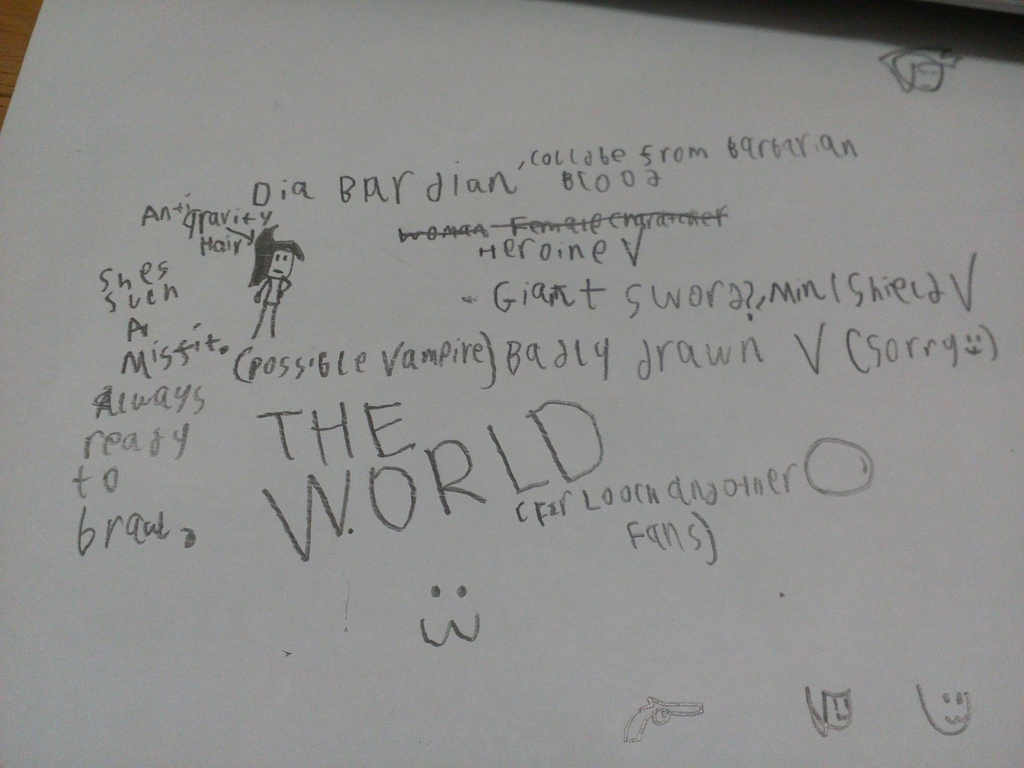 Dia Bardian, collabe from Barbarian
Blood
Anti
gravity
Hair
Woman Female Character
Heroine V
- Giant sword?, Mini shield V
Shes
such
A
Missit.
(possible Vampire) Badly drawn V (sorry :))
Always
ready
to
brawl.
THE
WORLD
(For Looch and other
Fans)